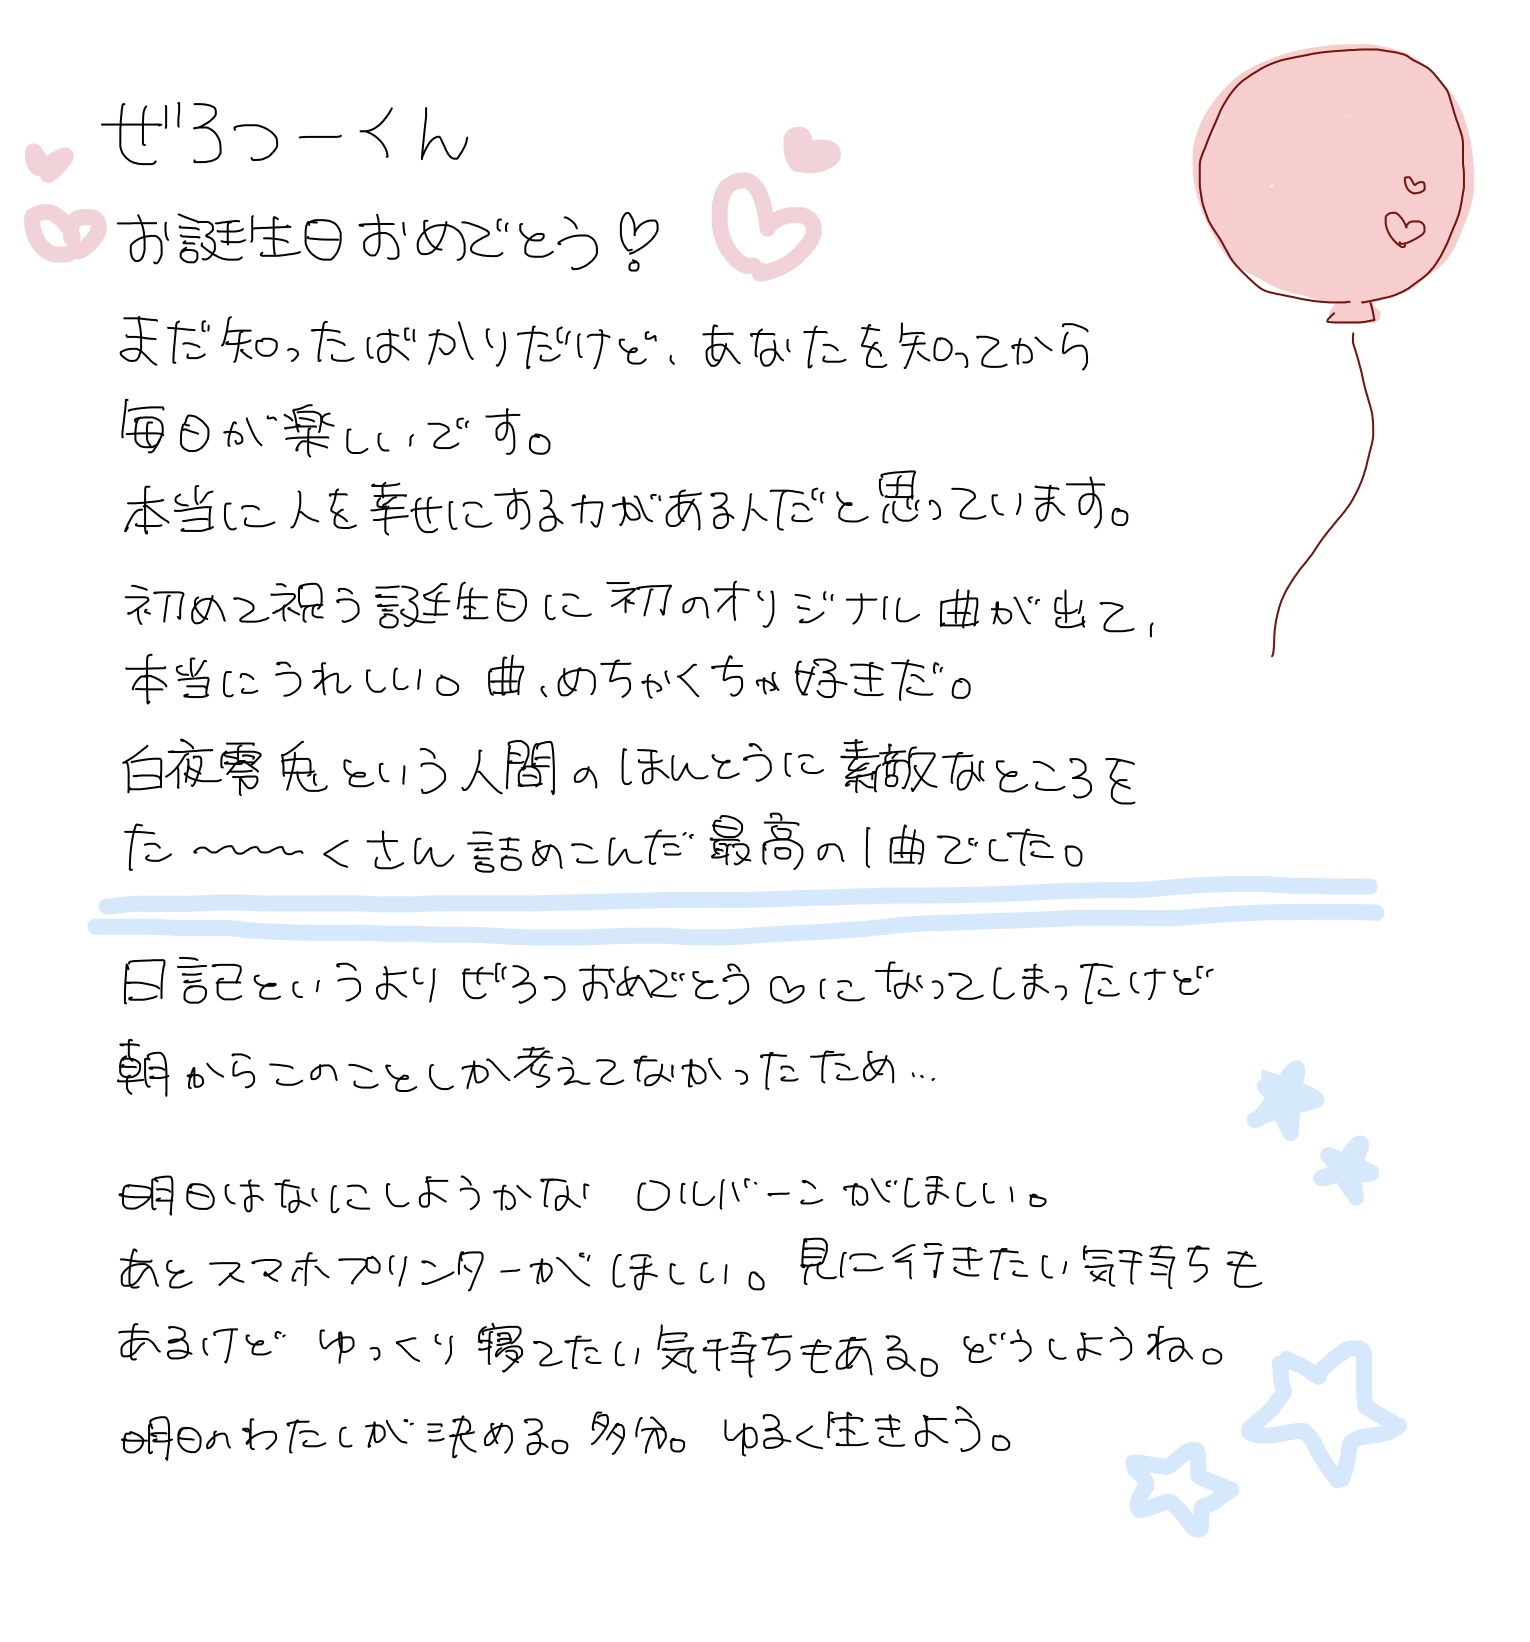 ぜろつーくん
お誕生日おめでとう♡
まだ知ったばかりだけど、あなたを知ってから
毎日が楽しいです。
本当に人を幸せにする力がある人だと思っています。
初めて祝う誕生日に初のオリジナル曲が出て、
本当にうれしい。曲、めちゃくちゃ好きだ。
白夜零兎という人間のほんとうに素敵なところを
た〜〜〜くさん詰めこんだ最高の1曲でした。
日記というよりぜろつおめでとう♡になってしまったけど
朝からこのことしか考えてなかったため…
明日はなにしようかな ロルバーンがほしい。
あとスマホプリンターがほしい。見に行きたい気持ちも
あるけど ゆっくり寝てたい気持ちもある。どうしようね。
明日のわたしが決める。多分。ゆるく生きよう。